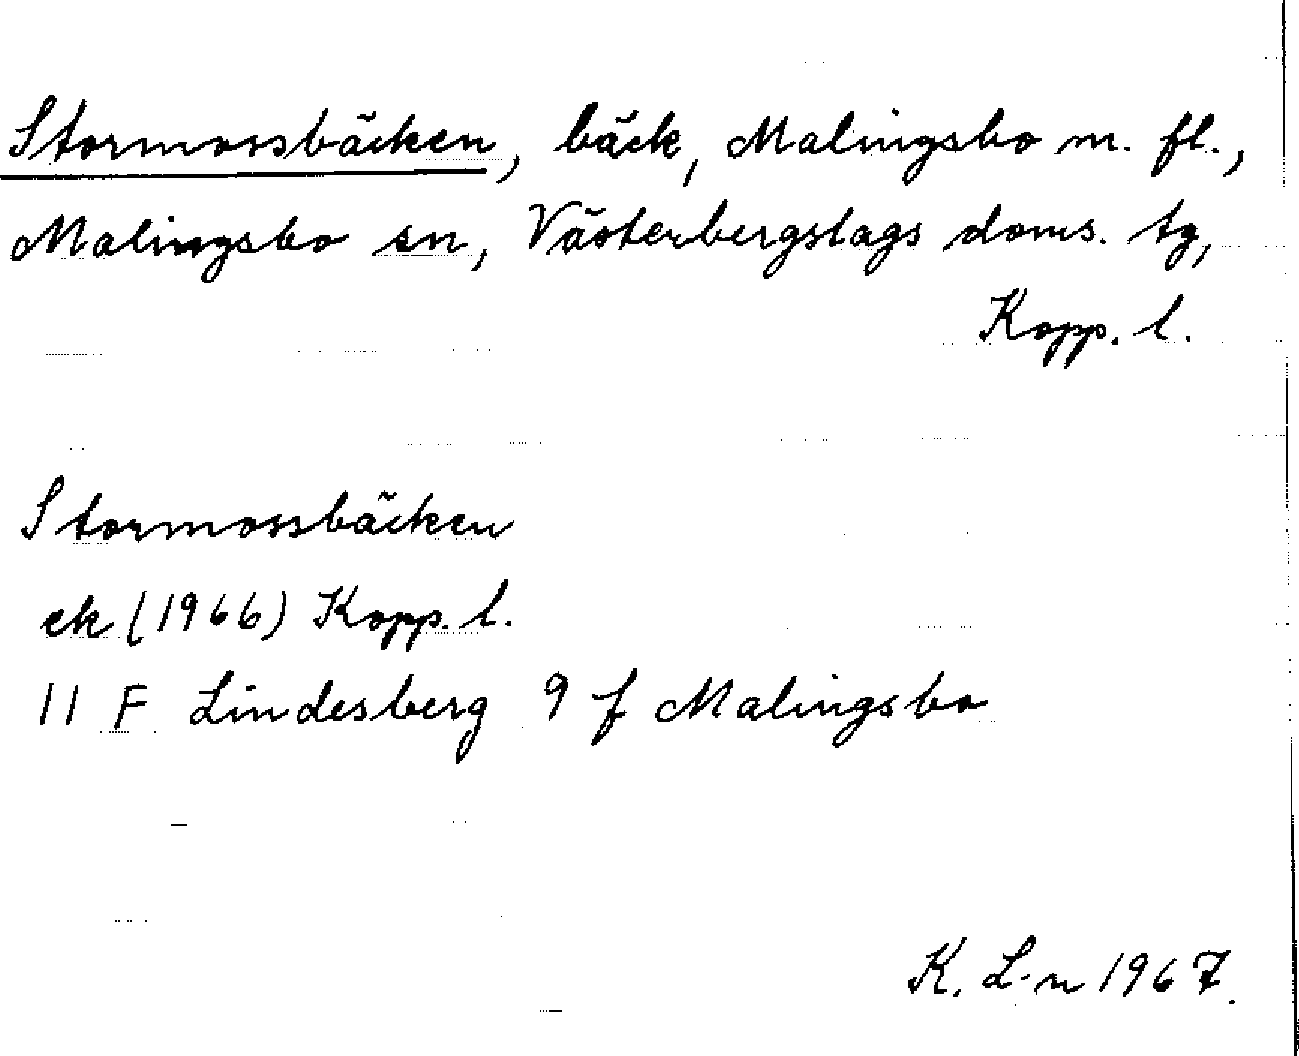 Stormossbäcken, bäck, Malingsbo m. fl.,
Malingsbo sn, Västerbergslags doms. tg,
Kopp. l.
Stormossbäcken
ek (1966) Kopp. l.
11 F Lindesberg 9 f Malingsbo
K. L-n 1967.